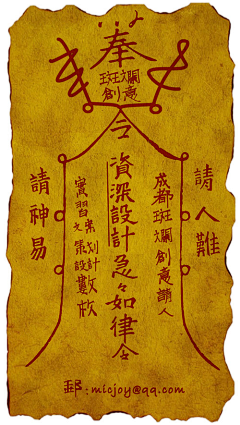 奉
斑斕
創意
令
請人難
成都斑斕創意請人
資深設計急々如律令
實習文案策划設計數枚
請神易
郵:micjoy@qq.com